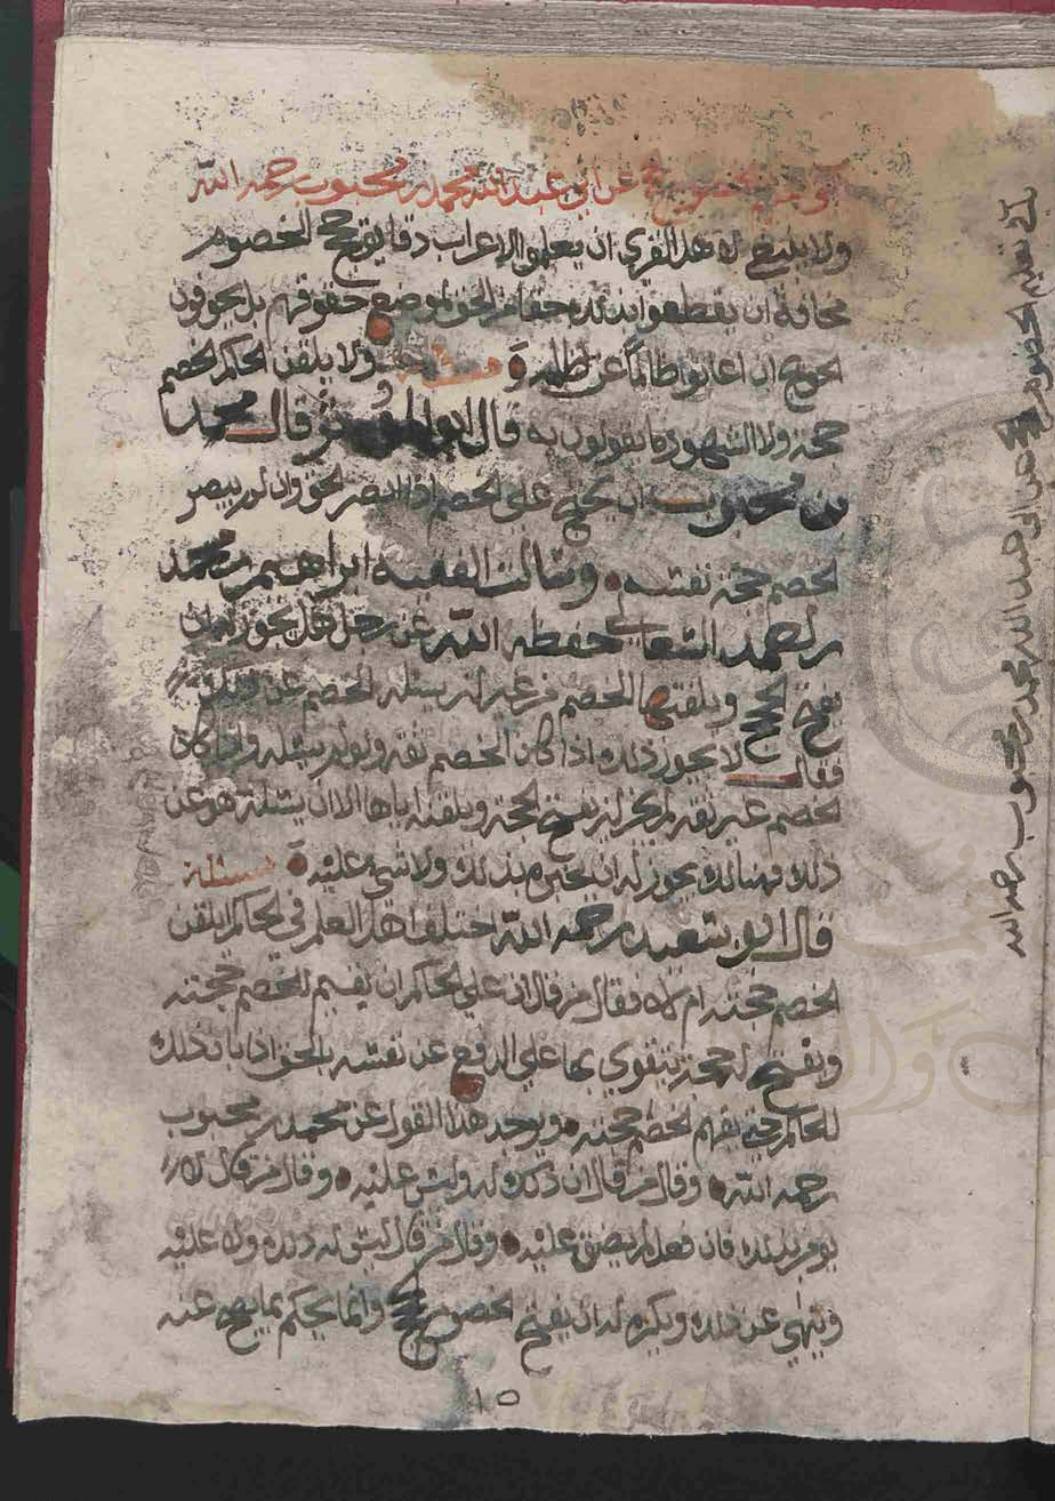 في تعليم الخصوم الحجج عن ابي عبد الله محمد بن محبوب رحمه الله
ولا ينبغي لاهل القرى ان يعلموا الاعراب دقايق حجج الخصوم
مخافة ان يقطعوا بذلك حقا من الحق بل يخوفون
ان اعانوا ظالما عن ظلمه ولا يلقن الحاكم الخصم
حجته ولا الشهود ما يقولون به قال ابو المؤثر قال محمد
بن محبوب ان يحتج على الخصم اذا ابصر الحق وان لم يبصر
الخصم حجة نفسه وسالت الفقيه ابراهيم بن محمد
حفظه الله عن رجل هل يجوز له ان
يفتح الحجج ويلقنها الخصم من غير ان يسئله الخصم عن ذلك
فقال لا يجوز ذلك اذا كان الخصم ثقة ولو لم يسئله واذا كان
الخصم غير ثقة لم يجز له يفتح الحجة ويلقنه اياها الا ان يسئله هو عن
ذلك فهنالك يجوز له ان يخبره بذلك ولا شيء عليه مسئلة
قال ابو سعيد رحمه الله اختلف اهل العلم في الحاكم ايلقن
الخصم حجته ام لا فقال من قال ان على الحاكم ان يفهم الخصم حجته
ويفتح له حجة يتقوى بها على الدفع عن نفسه بالحق اذا بان ذلك
للحاكم حتى يفهم الخصم حجته ويوجد هذا القول عن محمد بن محبوب
رحمه الله وقال من قال ان ذلك له وليس عليه وقال من قال لا
يومر بذلك فان فعل لم يضيق عليه وقال من قال ليس له ذلك ولا عليه
وينهى عن ذلك ويكره له ان يفتح للخصوم الحجج وانما يحكم بما يصح عنه
١٥
باب في تعليم الخصوم الحجج عن ابي عبد الله محمد بن محبوب رحمه الله